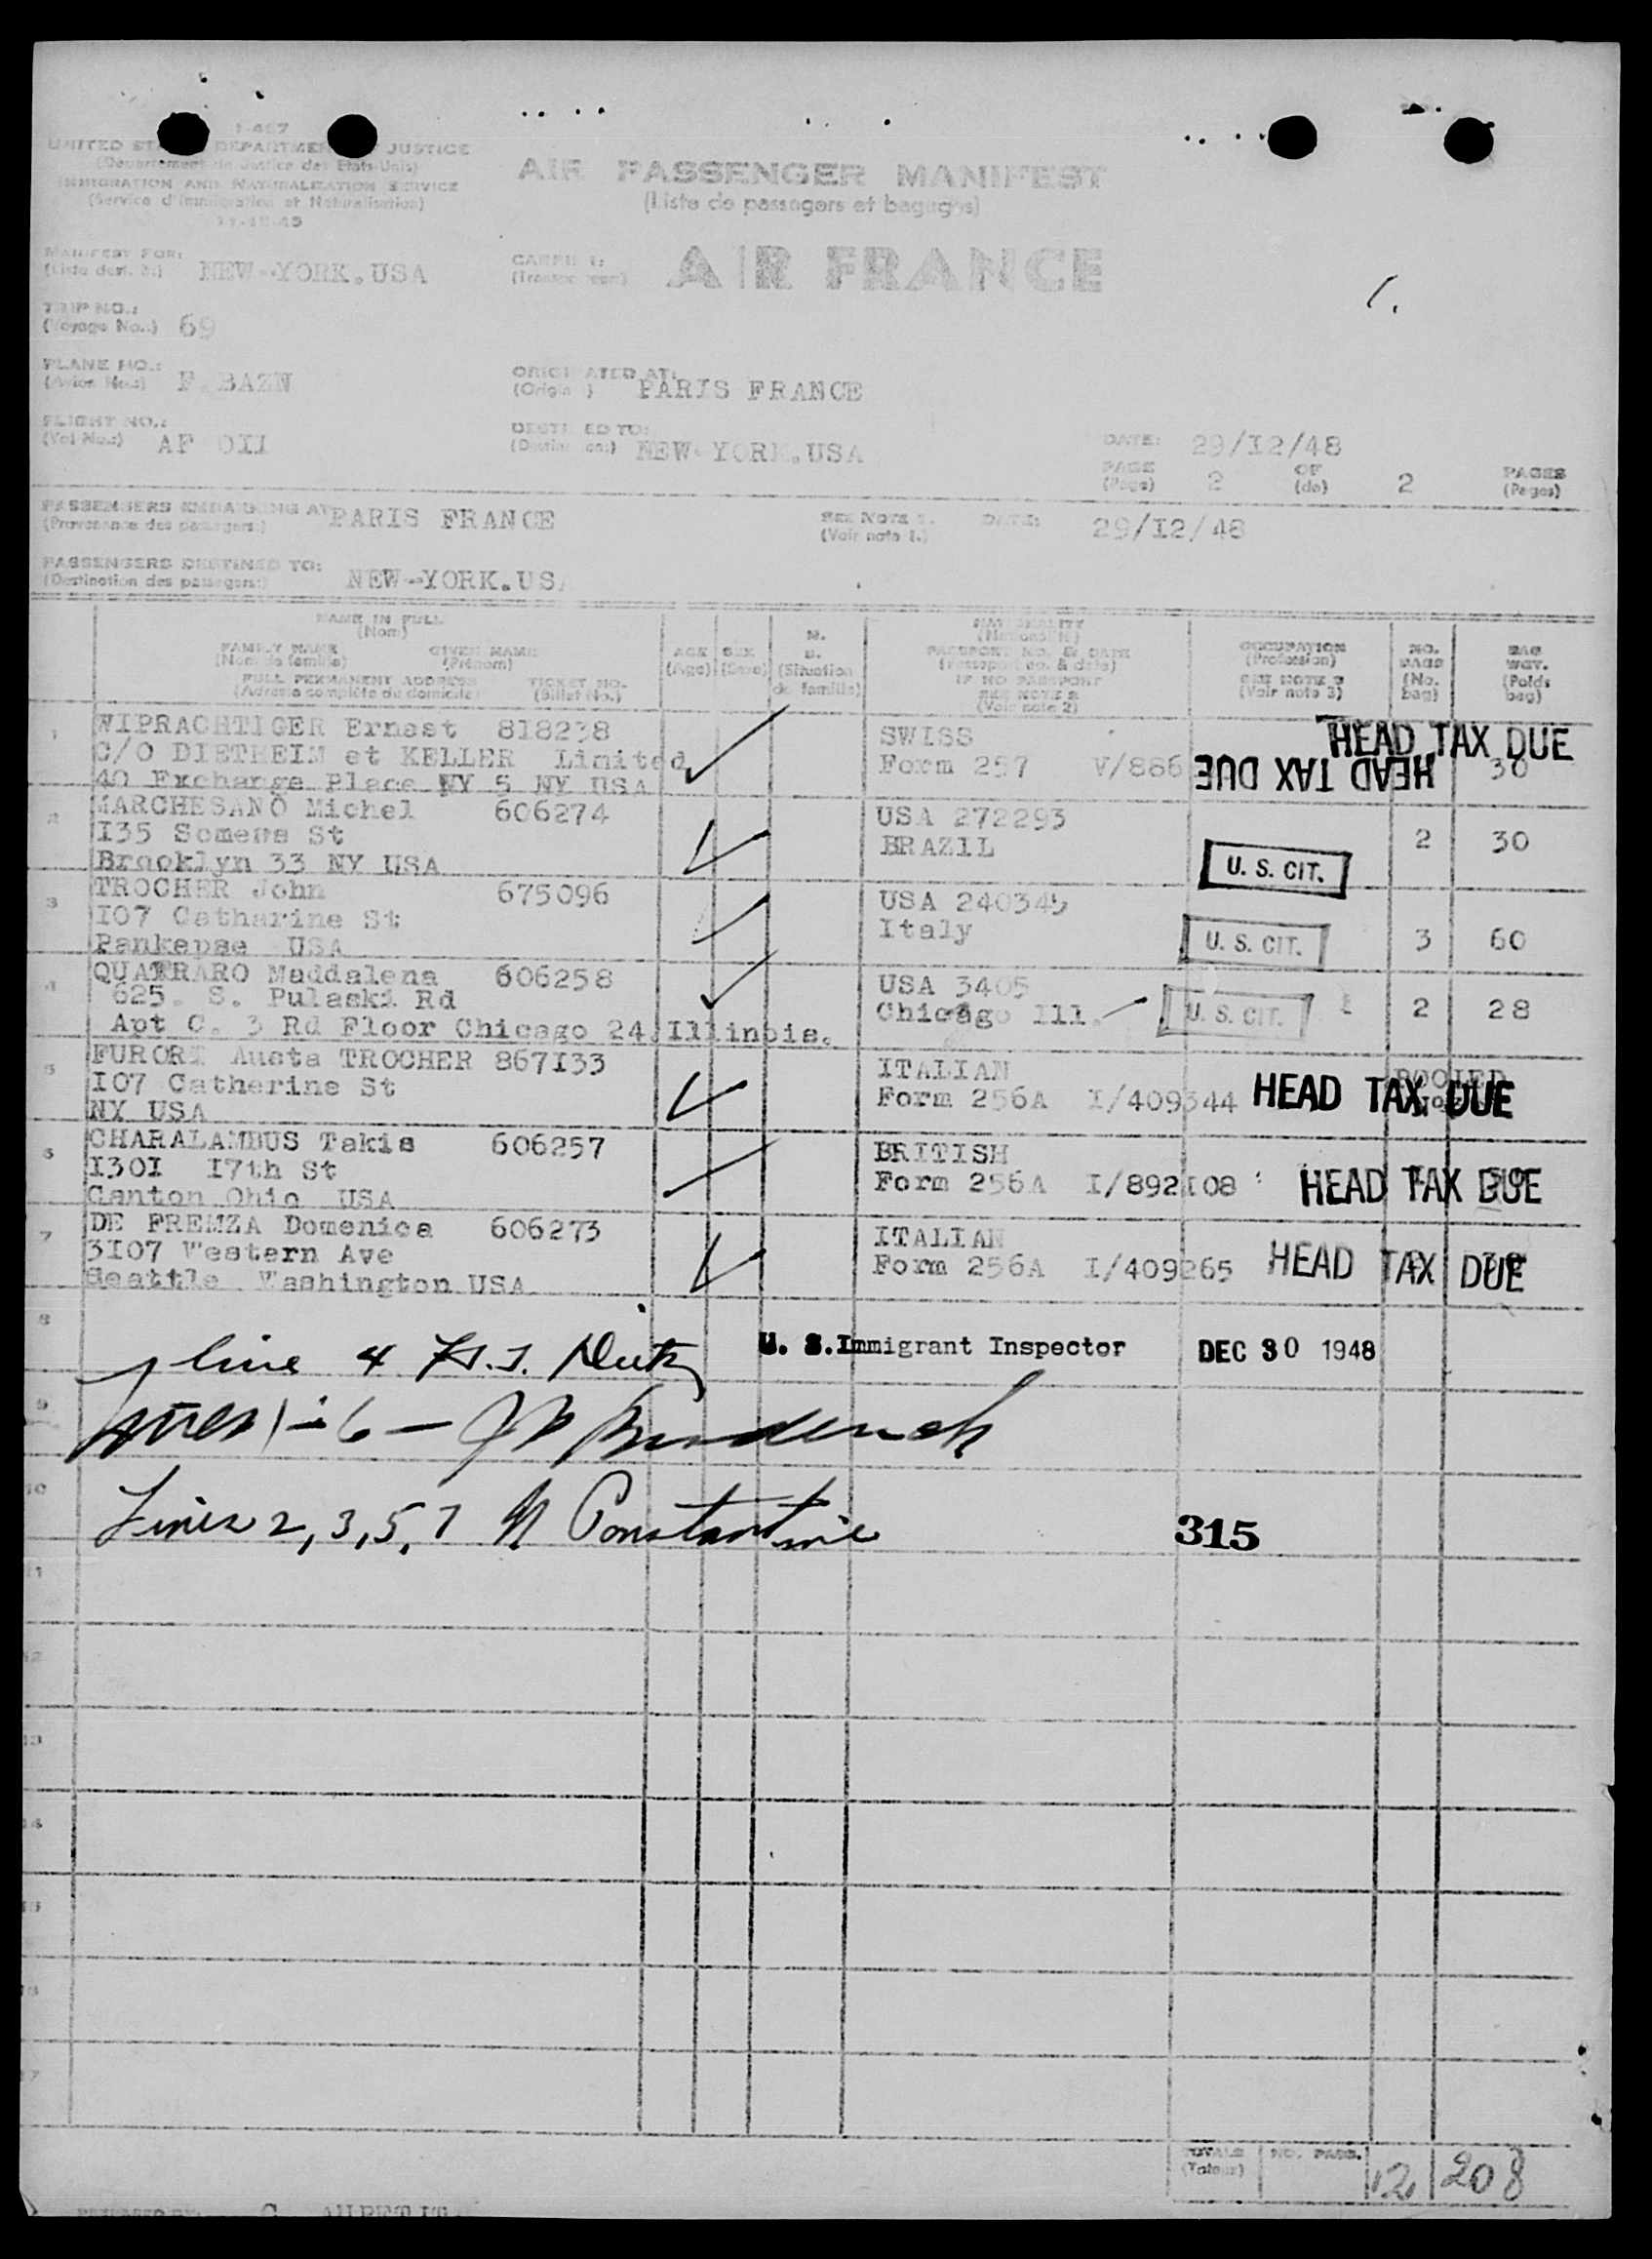 I-467
UNITED STATES DEPARTMENT JUSTICE
(Departement de Justice des Etats-Unis)
IMMIGRATION AND NATURALIZATION SERVICE
(Service d'Immigration et Naturalisation)
11-45
AIR PASSENGER MANIFEST
(Liste de passagers et bagages)
MANIFEST FOR:
NEW-YORK.USA
AIR FRANCE
1.
TRIP NO.:
(Voyage No.:) 69
PLANE NO.:
(Avion No.:) F.BAZN
ORIGINATED AT:
(Origin ) PARIS FRANCE
FLIGHT NO.:
(Vol No.:) AF OII
DESTINED TO:
NEW-YORK.USA
DATE: 29/I2/48
PAGE (Page) 2 OF (de) 2 PAGES (Pages)
PASSENGERS EMBARKING AT PARIS FRANCE
(Provenance des passagers:)
SEE NOTE 1.
(Voir note 1.)
DATE: 29/I2/48
PASSENGERS DESTINED TO:
(Destination des passagers:) NEW-YORK.US
NAME IN FULL
(Nom)
FAMILY NAME GIVEN NAME
(Nom de famille) (Prénom)
FULL PERMANENT ADDRESS TICKET NO.
(Adresse complète du domicile) (Billet No.)
AGE
(Age)
SEX
(Sexe)
M.
S.
(Situation
de famille)
NATIONALITY
(Nationalité)
PASSPORT NO. & DATE
(Passeport no. & date)
IF NO PASSPORT
SEE NOTE 2
(Voir note 2)
OCCUPATION
(Profession)
SEE NOTE 3
(Voir note 3)
NO.
BAGS
(No.
bag)
BAG
WGT.
(Poids
bag)
1 WIPRACHTIGER Ernest 818238 SWISS HEAD TAX DUE
C/O DIETHELM et KELLER Limited Form 257 V/886 HEAD TAX DUE 30
40 Exchange Place NY 5 NY USA
2 MARCHESANO Michel 606274 USA 272293
I35 Somers St BRAZIL 2 30
Brooklyn 33 NY USA U. S. CIT.
3 TROCHER John 675096 USA 240345
I07 Catharine St Italy U. S. CIT. 3 60
Pankepse USA
4 QUATRARO Maddalena 606258 USA 3405
625. S. Pulaski Rd Chicago Ill. U. S. CIT. 2 28
Apt C. 3 Rd Floor Chicago 24.Illinois.
5 FURORI Austa TROCHER 867I33 ITALIAN
I07 Catherine St Form 256A I/409344 HEAD TAX DUE
NY USA
6 CHARALAMBUS Takis 606257 BRITISH
I30I I7th St Form 256A I/892I08 HEAD TAX DUE
Canton Ohio USA
7 DE FREMZA Domenica 606273 ITALIAN
3I07 Western Ave Form 256A I/409265 HEAD TAX DUE
Seattle Washington USA
8 line 4 U. S. Immigrant Inspector DEC 30 1948
9 1-6 -
10 Lines 2, 3, 5, 7 N Constantine 315
11
12
13
14
15
16
17
TOTALS
(Totaux)
NO. PASS.
12 208